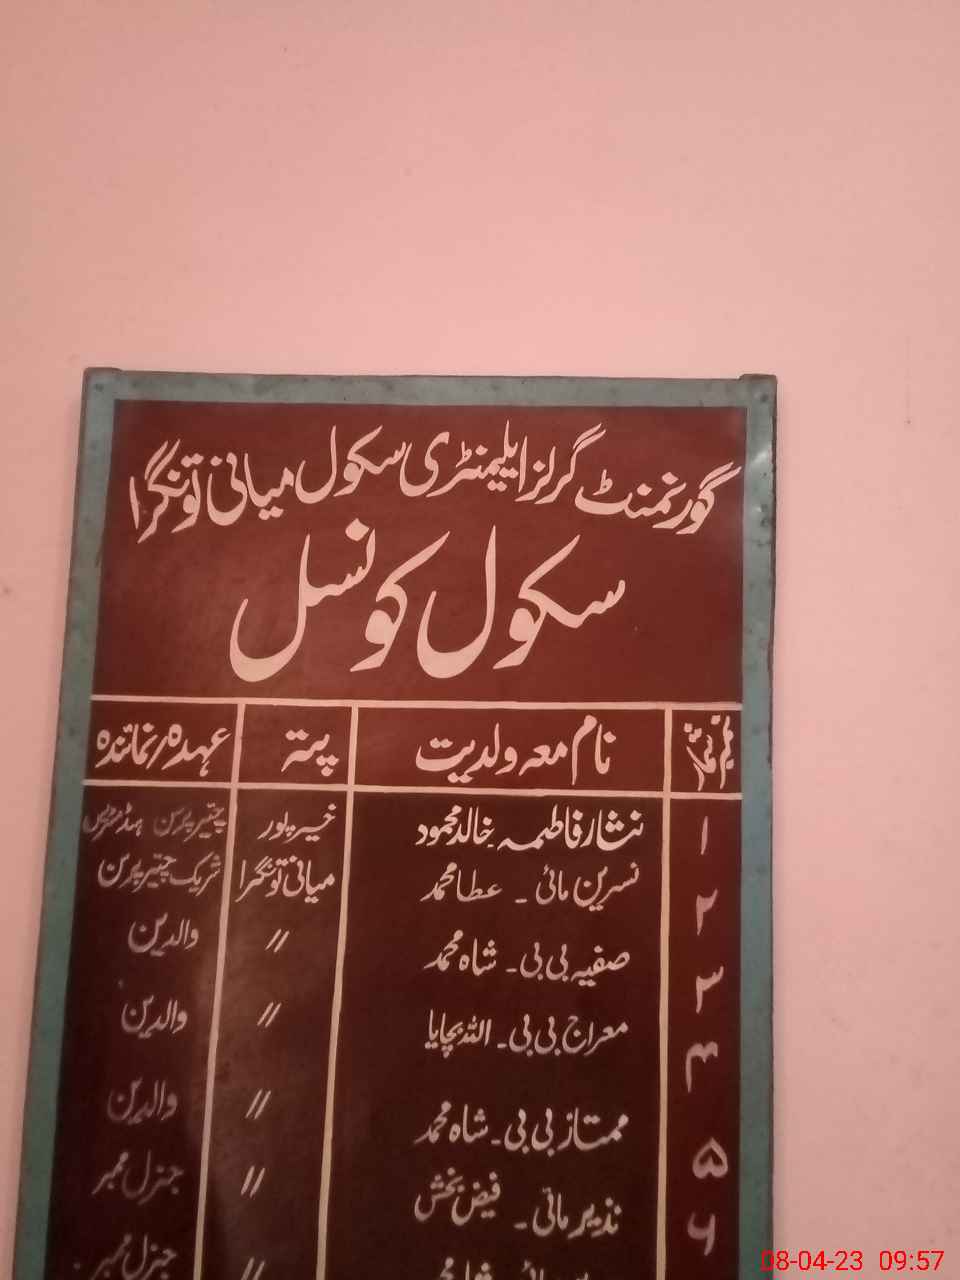 گورنمنٹ گرلز ایلیمنٹری سکول میانی تونگرا
سکول کونسل
نمبر شمار نام معہ ولدیت پتہ عہدہ/نمائندہ
۱ نثار فاطمہ خالد محمود خیرپور چئیرپرسن ہیڈمسٹریس
۲ نسرین مائی ۔ عطا محمد میانی تونگرا شریک چئیرپرسن
۳ صفیہ بی بی ۔ شاہ محمد // والدین
۴ معراج بی بی ۔ اللہ بچایا // والدین
۵ ممتاز بی بی ۔ شاہ محمد // والدین
۶ نذیر مائی ۔ فیض بخش // جنرل ممبر
// جنرل ممبر
08-04-23 09:57